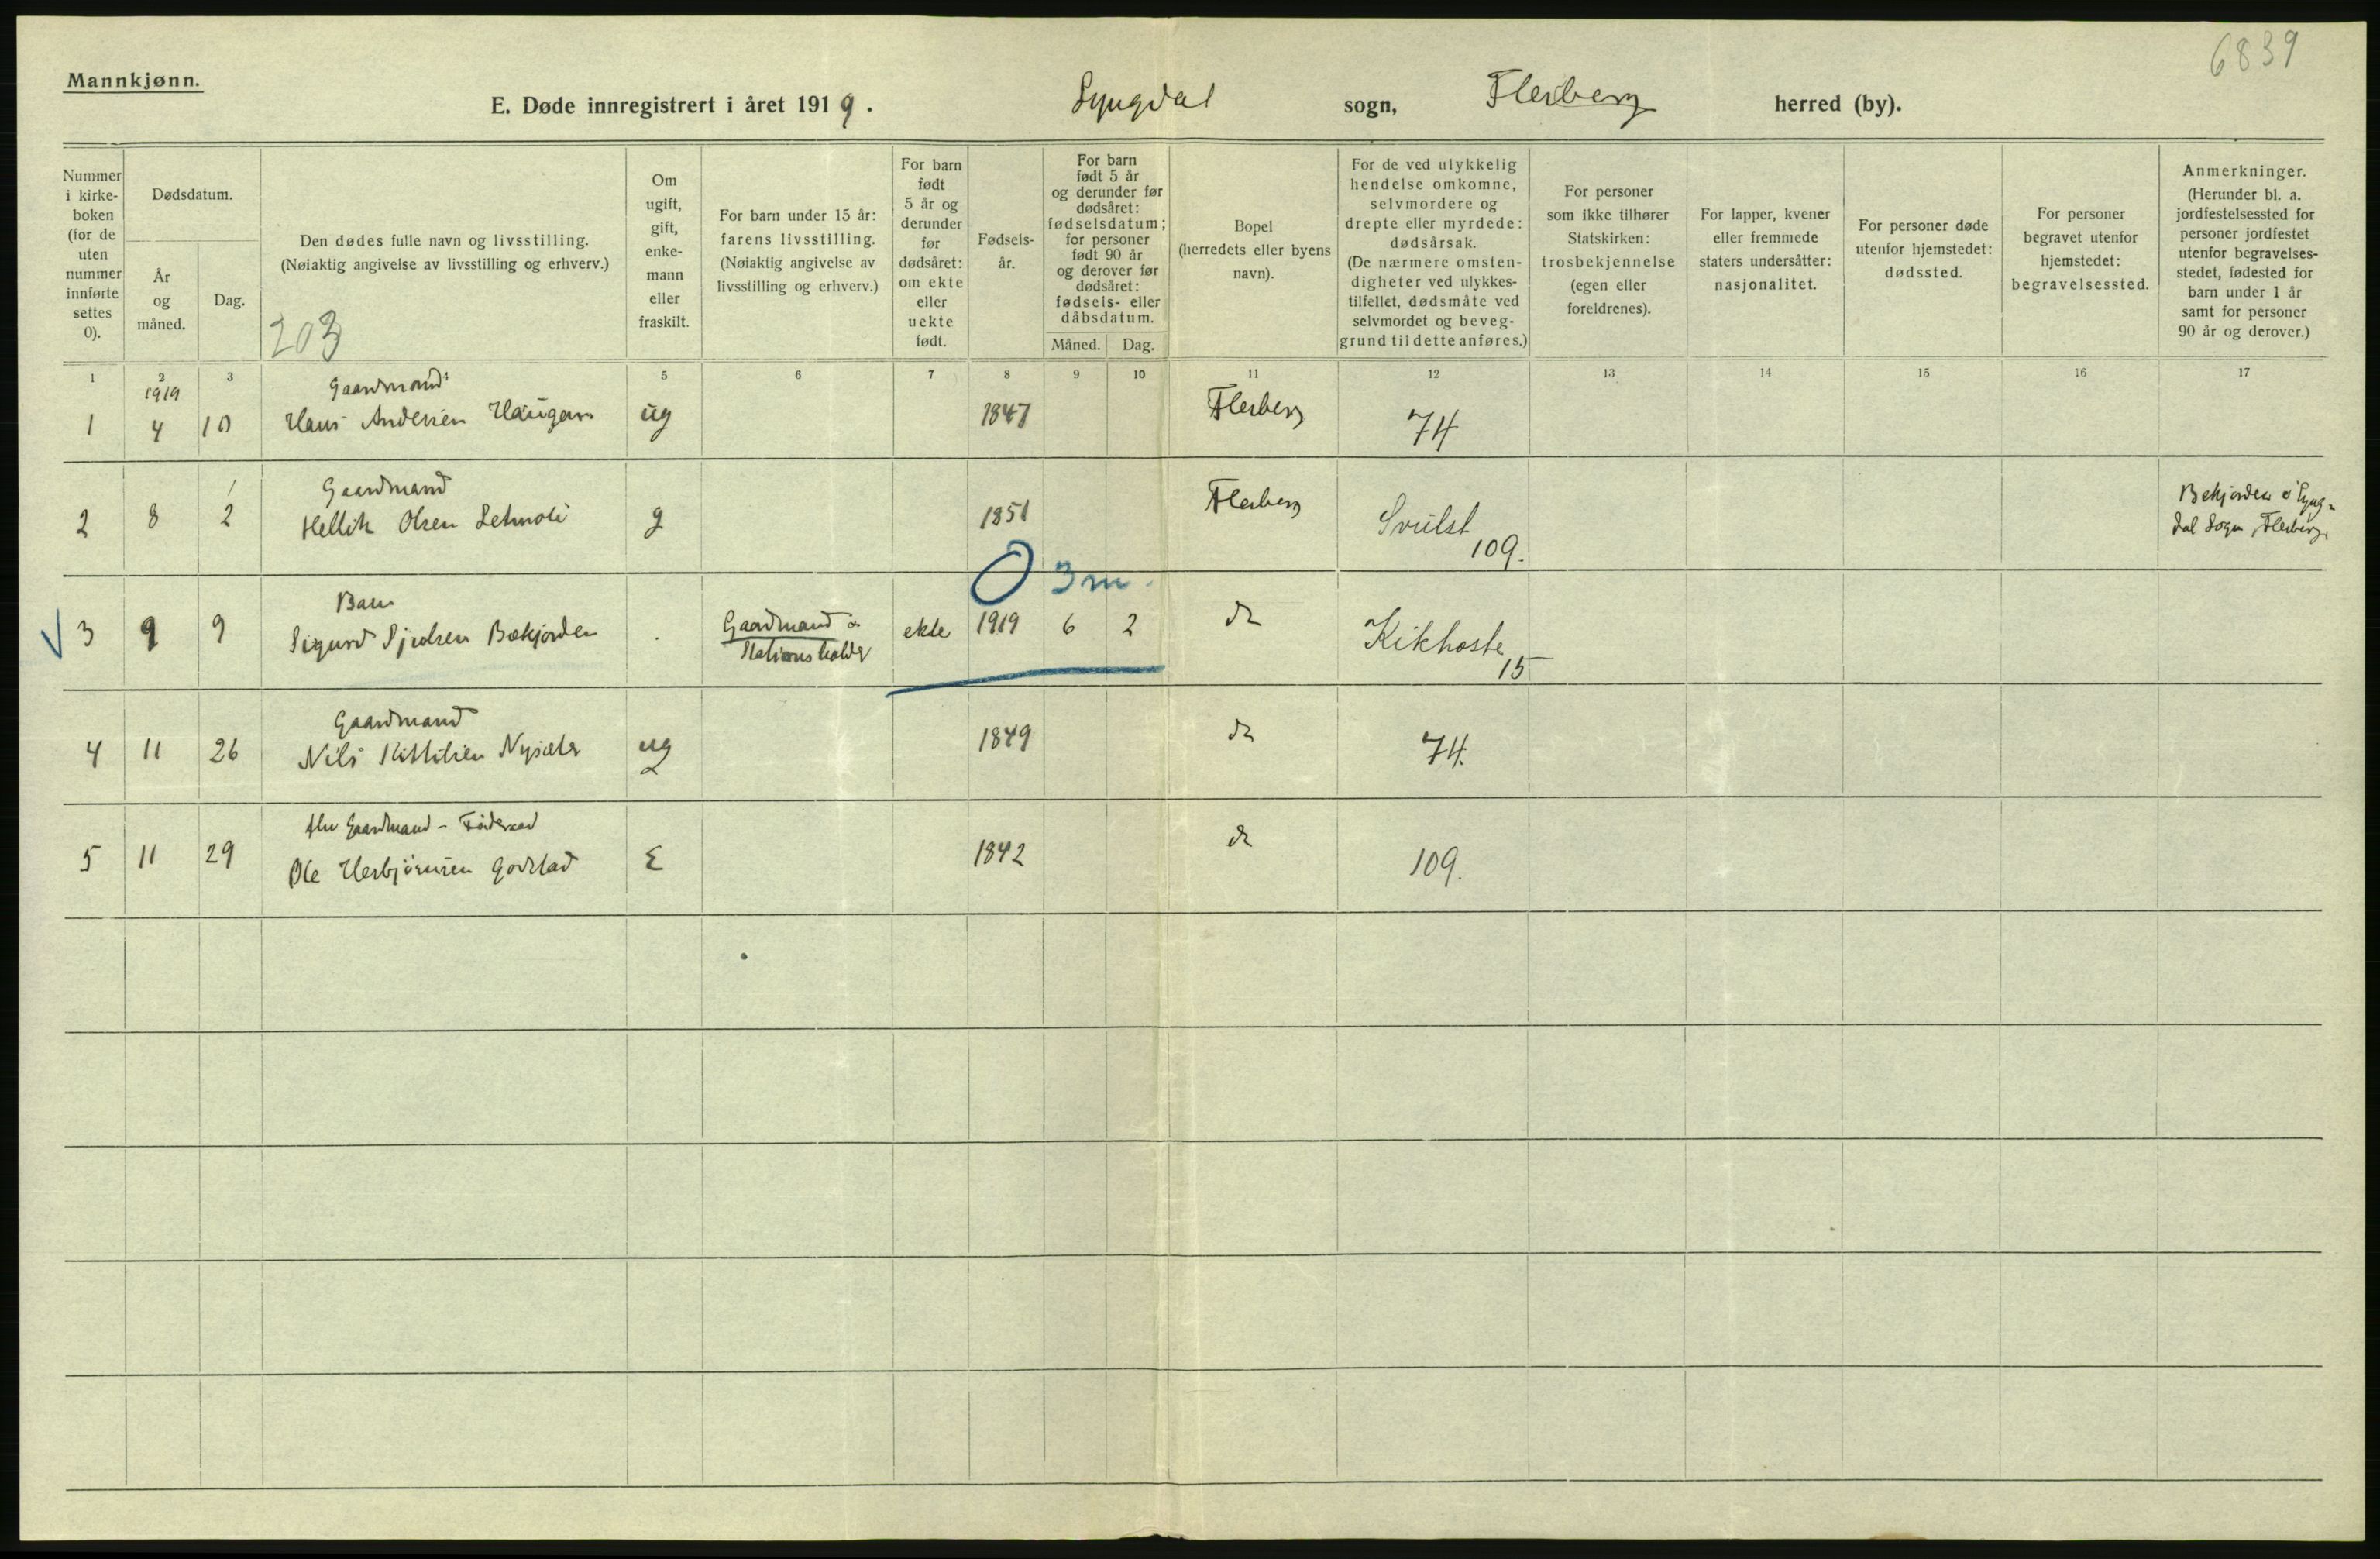 6839
Mannkjønn.
E. Døde innregistrert i året 1919. Lyngdal sogn, Flesberg herred (by).
Nummer i kirke- boken (for de uten nummer innførte settes 0).
Dødsdatum.
År og måned.
Dag.
Den dødes fulle navn og livsstilling.
(Nøiaktig angivelse av livsstilling og erhverv.)
203
Om ugift, gift, enke- mann eller fraskilt.
For barn under 15 år: farens livsstilling. (Nøiaktig angivelse av livsstilling og erhverv.)
For barn født 5 år og derunder før dødsåret: om ekte eller uekte født.
Fødsels- år.
For barn født 5 år og derunder før dødsåret: fødselsdatum; for personer født 90 år og derover før dødsåret: fødsels- eller dåbsdatum.
Måned. Dag.
Bopel (herredets eller byens navn).
For de ved ulykkelig hendelse omkomne, selvmordere og drepte eller myrdede: dødsårsak. (De nærmere omsten- digheter ved ulykkes- tilfellet, dødsmåte ved selvmordet og beveg- grund til dette anføres.)
For personer som ikke tilhører Statskirken: trosbekjennelse (egen eller foreldrenes).
For lapper, kvener eller fremmede staters undersåtter: nasjonalitet.
For personer døde utenfor hjemstedet: dødssted.
For personer begravet utenfor hjemstedet: begravelsessted.
Anmerkninger. (Herunder bl. a. jordfestelsessted for personer jordfestet utenfor begravelses- stedet, fødested for barn under 1 år samt for personer 90 år og derover.)
1 2 3 5 6 7 8 9 10 11 12 13 14 15 16 17
1919 Gaardmand
1 4 10 Hans Andersen Haugan ug 1847 Flesberg 74
Gaardmand
2 8 2 Hellik Olsen g 1851 Flesberg Svulst 109. Bekjorden i Lyng-
dal Sogn, Flesberg.
O 3 m.
Barn
V 3 9 9 Sigurd Bekjorden Gaardmand & ekte 1919 6 2 do Kikhoste 15
Stationsholder
Gaardmand
4 11 26 Nils Kittilsen Nysæter ug 1849 do 74.
fhv Gaardmand - Føderaad
5 11 29 Ole Herbjørnsen E 1842 do 109.